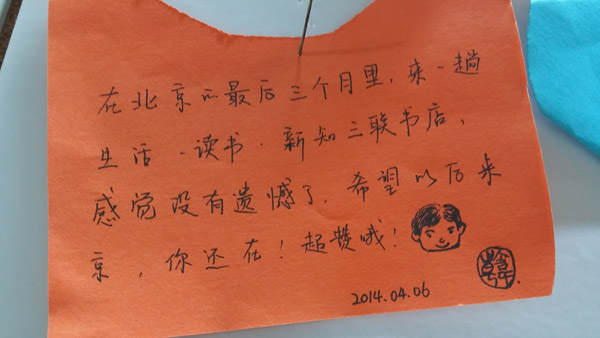 在北京的最后三个月里，来一趟
生活·读书·新知三联书店，
感觉没有遗憾了，希望以后来
京，你还在！超赞哦！
2014.04.06